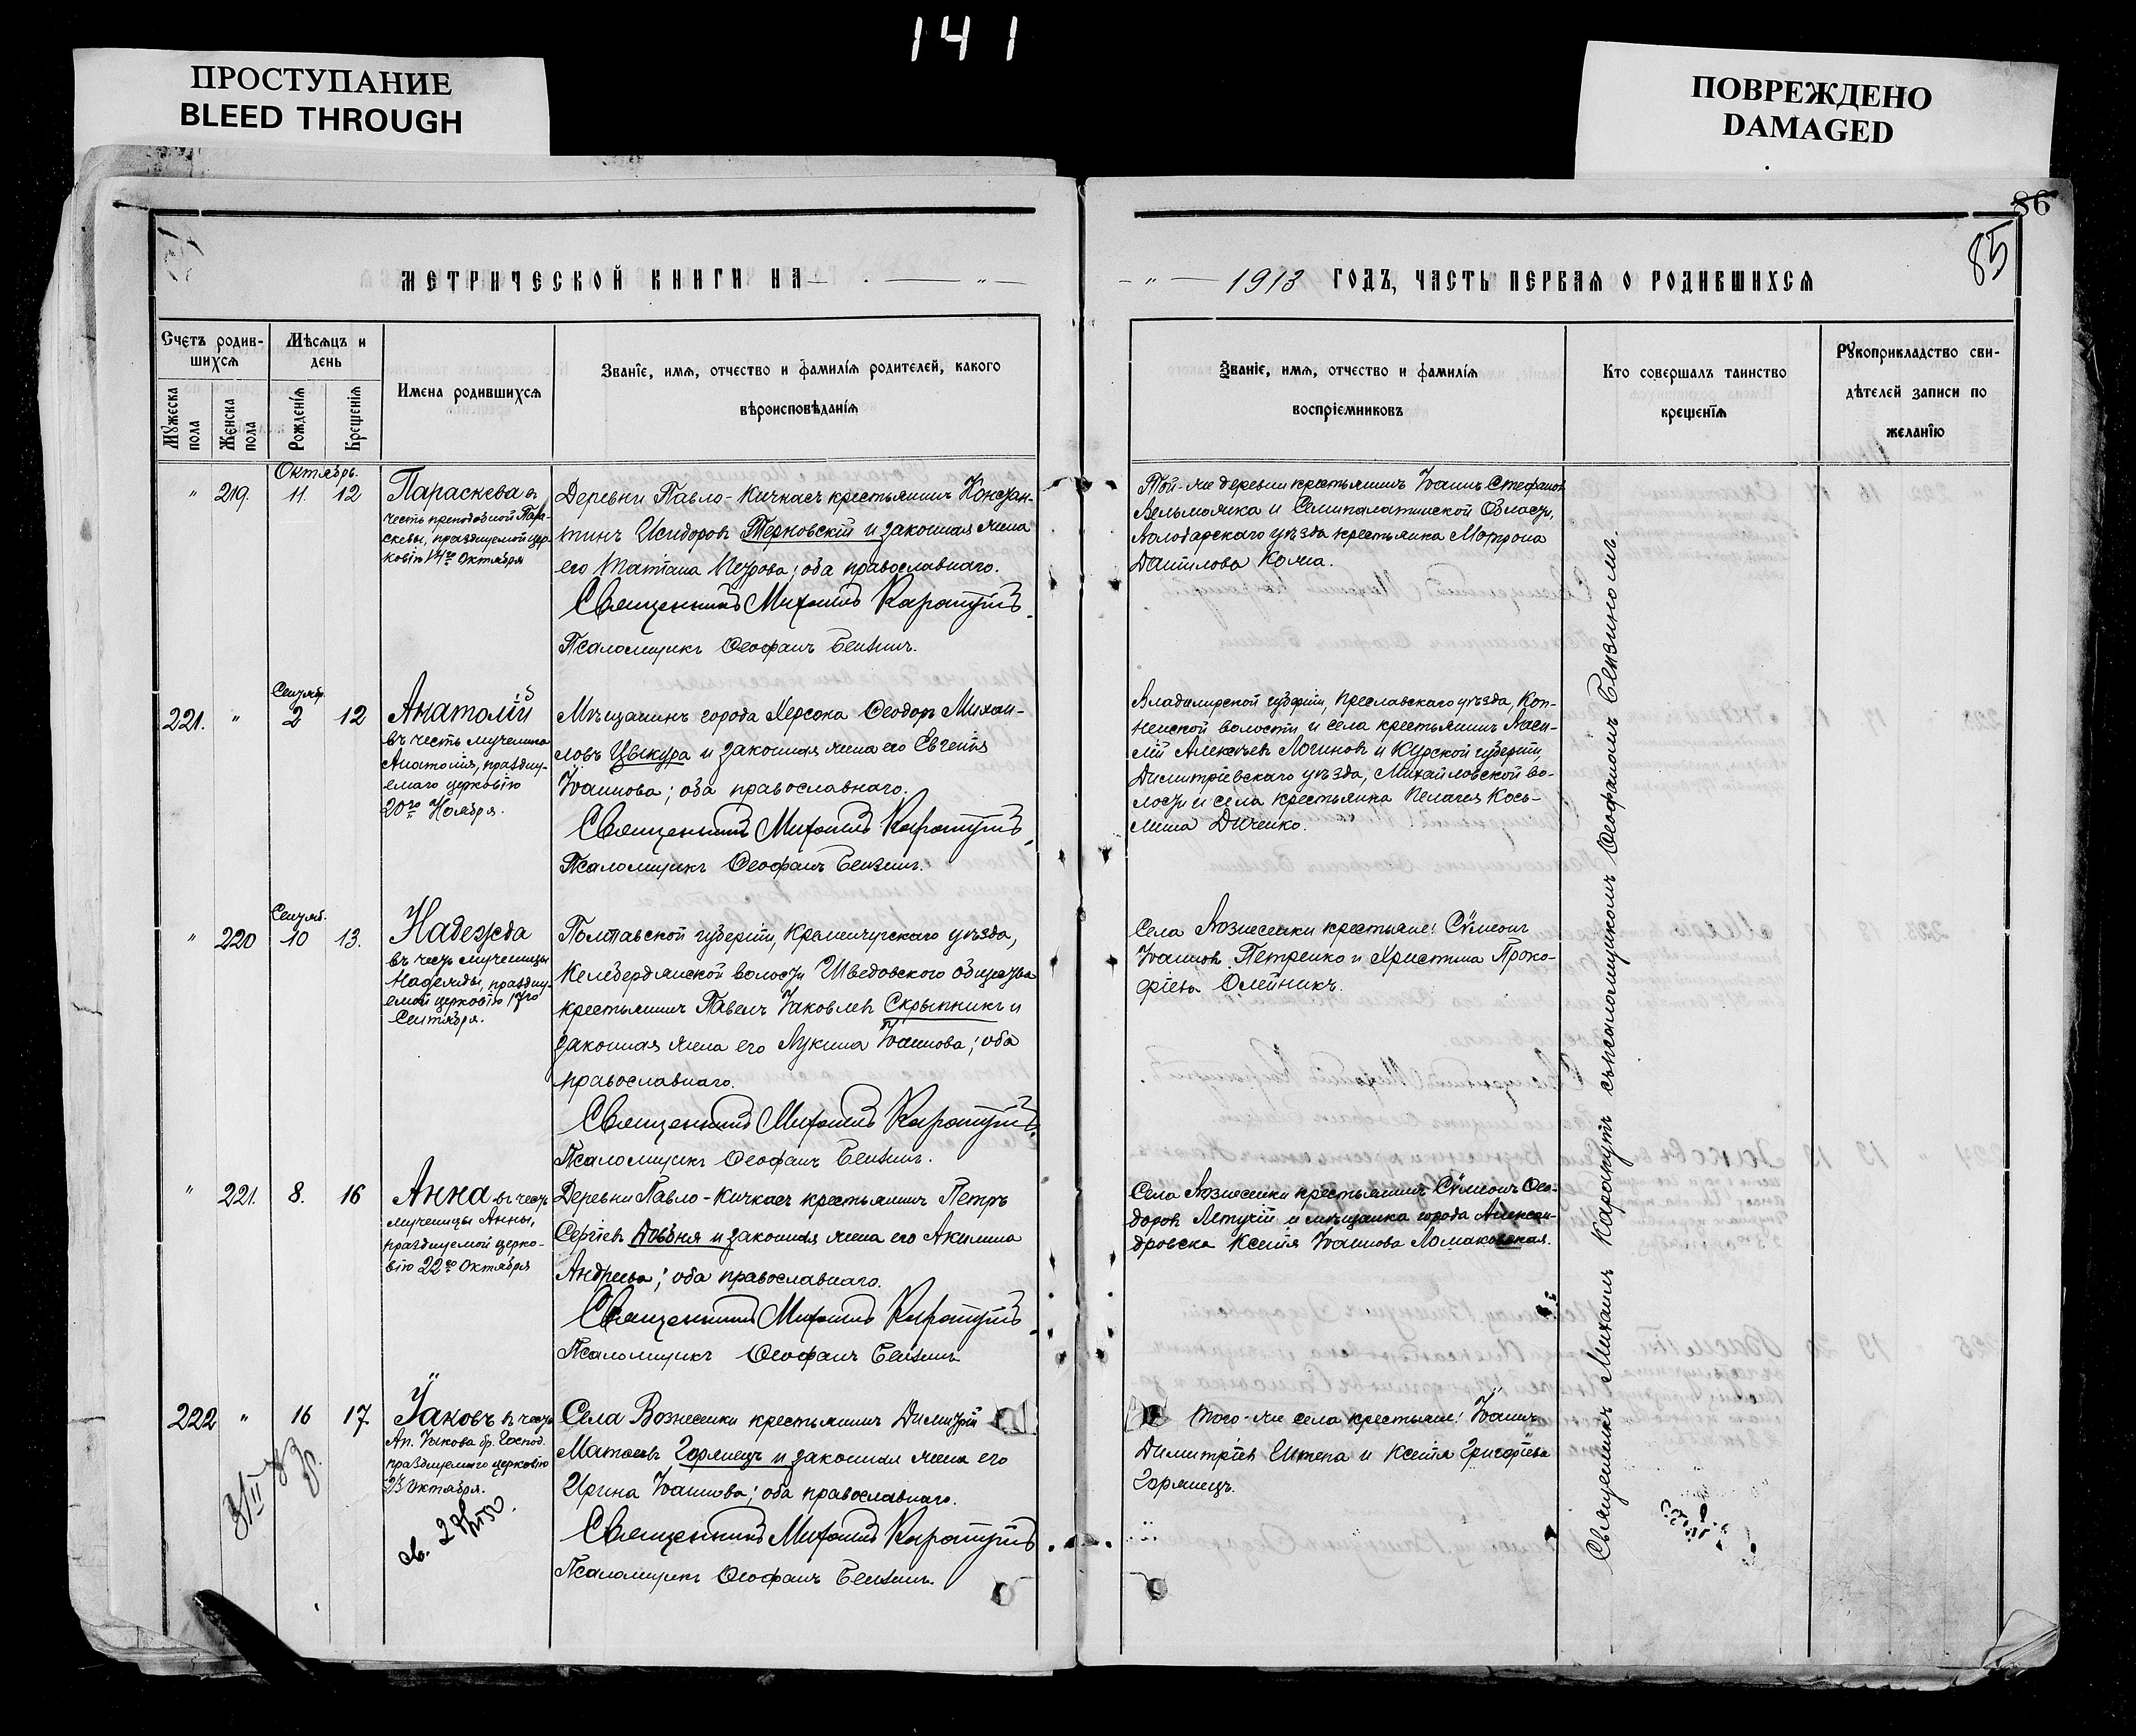 141
ПРОСТУПАНИЕ
BLEED THROUGH
ПОВРЕЖДЕНО
DAMAGED
86
85
МЕТРИЧЕСКОЙ КНИГИ НА
1913 ГОДЪ, ЧАСТЬ ПЕРВАЯ О РОДИВШИХСЯ
Счетъ родив-
шихся
Мѣсяцъ и
день
Мужеска
пола
Женска
пола
Рожденія
Крещенія
Имена родившихся
Званіе, имя, отчество и фамилія родителей, какого
вѣроисповѣданія
Званіе, имя, отчество и фамилія
воспріемниковъ
Кто совершалъ таинство
крещенія
Рукоприкладство сви-
дѣтелей записи по
желанію
Октябрь.
" 219. 11. 12
Параскева въ
честь преподобной Пара-
скевы, празднуемой цер-
ковію 14го Октября
Деревни Павло-Кичкасъ крестьянинъ Констан-
тинъ Исидоровъ Терновскій и законная жена
его Татіана Петрова; оба православнаго.
Священникъ Михаилъ Карапутъ
Псаломщикъ Ѳеофанъ Бензинъ.
Той-же деревни крестьянинъ Іоаннъ Стефановъ
Вельможка и Семипалатинской Области,
Володарскаго уѣзда крестьянка Матрона
Даніилова Кожа.
Сентяб.
221. " 2 12
Анатолій
въ честь мученика
Анатолія, праздну-
емаго церковію
20го Ноября.
Мѣщанинъ города Херсона Ѳеодоръ Михаи-
ловъ Цыкура и законная жена его Евгенія
Іоаннова; оба православнаго.
Священникъ Михаилъ Карапутъ
Псаломщикъ Ѳеофанъ Бензинъ.
Владимирской губерніи, Преславскаго уѣзда, Коп-
нинской волости и села крестьянинъ Васи-
лій Алексѣевъ Логиновъ и Курской губерніи,
Димитріевскаго уѣзда, Михайловской во-
лости и села крестьянка Пелагея Кось-
мина Диченко.
Сентяб.
" 220 10 13.
Надежда
въ честь мученицы
Надежды, праздну-
емой церковію 17го
Сентября.
Полтавской губерніи, Кременчугскаго уѣзда,
Келебердянской волости Шведовского общества
крестьянинъ Павелъ Іаковлевъ Скрыпникъ и
законная жена его Лукина Іоаннова; оба
православнаго.
Священникъ Михаилъ Карапутъ
Псаломщикъ Ѳеофанъ Бензинъ.
Села Вознесенки крестьяне: Сѵмеонъ
Іоанновъ Петренко и Христина Проко-
фіева Олейникъ.
" 221. 8. 16
Анна въ честь
мученицы Анны,
празднуемой церко-
вію 22го Октября
Деревни Павло-Кичкасъ крестьянинъ Петръ
Сергіевъ Довбня и законная жена его Акилина
Андреева; оба православнаго.
Священникъ Михаилъ Карапутъ
Псаломщикъ Ѳеофанъ Бензинъ
Села Вознесенки крестьянинъ Сѵмеонъ Ѳео-
доровъ Летучій и мѣщанка города Алексан-
дровска Ксенія Іоаннова Ломаковская.
222 " 16 17
Іаковъ въ честь
Ап. Іакова бр. Господ.
празднуемаго церковію
23 Октября.
Села Вознесенки крестьянинъ Димитрій
Матѳеевъ Горянецъ и законная жена его
Ирина Іоаннова; оба православнаго.
Священникъ Михаилъ Карапутъ
Псаломщикъ Ѳеофанъ Бензинъ.
того-же села крестьяне: Іоаннъ
Димитріевъ Штепа и Ксенія Григоріева
Горянецъ.
Священникъ Михаилъ Карапутъ съ псаломщикомъ Ѳеофаномъ Бензиномъ.